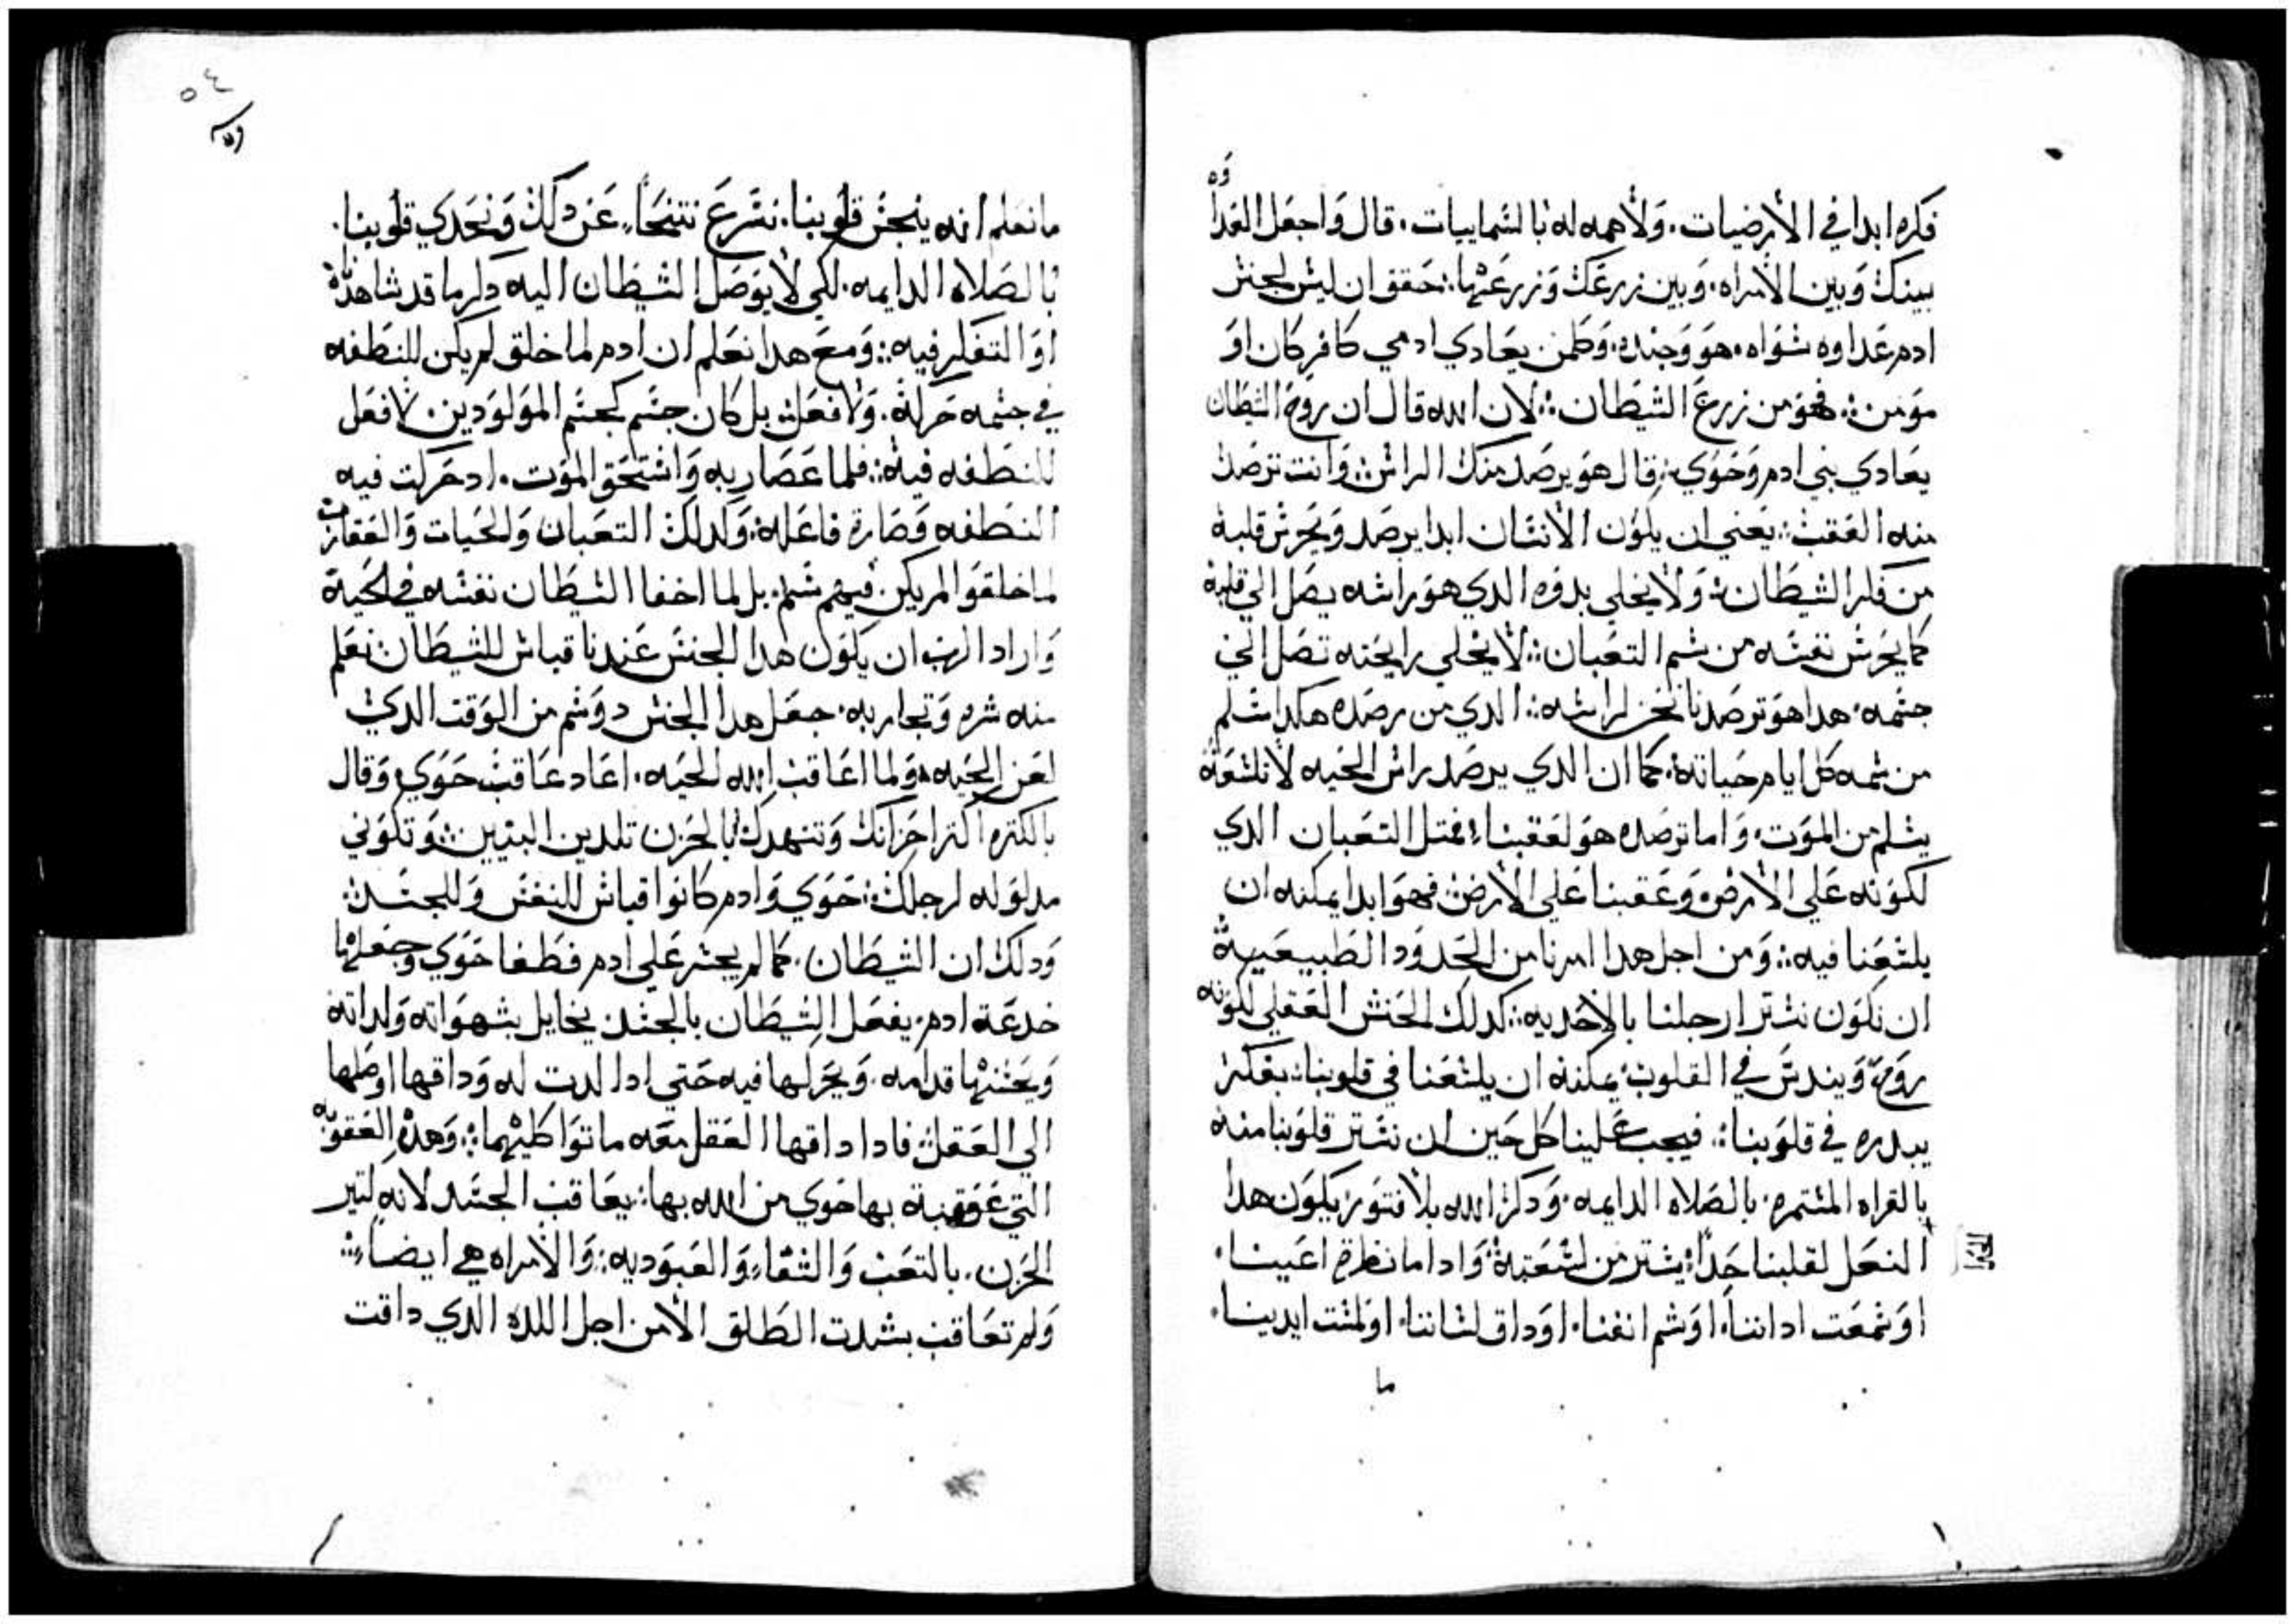 فكره ابدا في الارضيات. ولا همه له بالسماييات. قال واجعل العداوه
بينك وبين الامراه. وبين زرعك وزرعها: حقق ان ليس لجنس
ادم عداوه سواه. هو وجنده. وكلمن يعادي ادمي كافر كان او
مومن: فهو من زرع الشيطان: لان الله قال ان روح الشيطان
يعادي بني ادم وحوي: قال هو يرصد منك الراس: وانت ترصد
منه العقب: يعني ان يكون الانسان ابدا يرصد ويحرس قلبه
من فكر الشيطان: ولا يخلي بدوه الدي هو راسه يصل الي قلبه
كما يحرس نفسه من سم التعبان: لا يخلي رايحته تصل الي
جسمه. هدا هو ترصدنا نحن لراسه: الدي من رصده هكدا سلم
من سمه كل ايام حياته. كما ان الدي يرصد راس الحيه لا تلسعه
يسلم من الموت. واما ترصده هو لعقبنا: فمتل التعبان الدي
لكونه علي الارض وعقبنا علي الارض فهو ابدا يمكنه ان
يلسعنا فيه: ومن اجل هدا امرنا من الحدود الطبيعيه
ان نكون نستر ارجلنا بالاحديه: كدلك الحنش العقلي لكونه
روح ويندس في القلوب يمكنه ان يلسعنا في قلوبنا: بفكر
يبدره في قلوبنا: فيجب علينا كل حين ان نستر قلوبنا منه
بالقراه المستمره. بالصلاه الدايمه. ودكر الله بلا فتور يكون هدا
النعل لقلبنا حدا: يستر من لسعته: وادا ما نظرة اعيننا.
او سمعت اداننا. او شم انفنا. او داق لساننا. او لمست ايدينا.
ما
٥٤
ما نعلم انه ينجس قلوبنا. نسرع نتنحا. عن دلك ونحدي قلوبنا.
بالصلاه الدايمه. لكي لا يوصل الشيطان اليه دكر ما قد شاهدناه
او التفكر فيه: ومع هدا نعلم ان ادم لما خلق لم يكن للنطفه
في جسمه حركة. ولا فعل: بل كان جسم كجسم المولودين. لا فعل
للنطفه فيه: فلما عصا ربه واستحق الموت. ادحركت فيه
النطفه وصارة فاعله: وكدلك التعبان والحيات والعقارب
لما خلقوا لم يكن فيهم سم. بل لما اخفا الشيطان نفسه في الحية
واراد الرب ان يكون هدا الجنس عندنا قياس للشيطان نعلم
منه شره وتجاربه. جعل هدا الجنس دو سم من الوقت الدي
لعن الحيه: ولما اعاقب الله الحيه. اعاد عاقب حوي وقال
بالكتره اكتر احزانك وتنهدك بالحزن تلدين البنين: وتكوني
مدلوله لرجلك: حوي وادم كانوا قياس للنفس وللجسد:
ودلك ان الشيطان. كما لم يجسر علي ادم فطغا حوي وجعلها
خدعة ادم. يفعل الشيطان بالجسد يخايل بشهواته ولداته
ويحسنها قدامه. ويحركها فيه حتي ادا لدت له وداقها اوصلها
الي العقل: فادا داقها العقل معه ما توا كليهما: وهده العقوبه
التي عوقبة بها حوي من الله بها: يعاقب الجسد لانه لتير
الحزن. بالتعب والشقا. والعبوديه: والامراه هي ايضا:
ولم تعاقب بشدت الطلق الا من اجل اللده الدي داقت